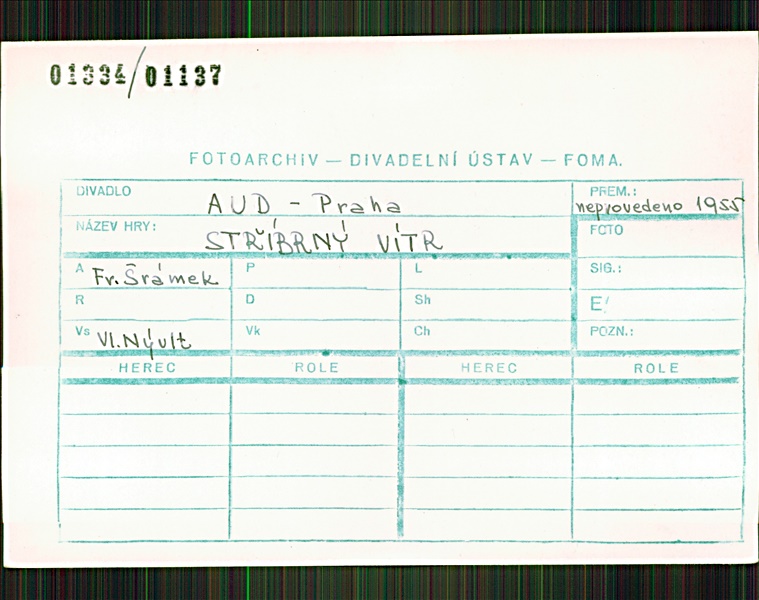 01334/01137
FOTOARCHIV — DIVADELNÍ ÚSTAV — FOMA.
DIVADLO AUD - Praha PREM.: neprovedeno 1955
NÁZEV HRY: STŘÍBRNÝ VÍTR FOTO
A Fr. Šrámek P L SIG.:
R D Sh E/
Vs Vl. Nývlt Vk Ch POZN.:
HEREC ROLE HEREC ROLE